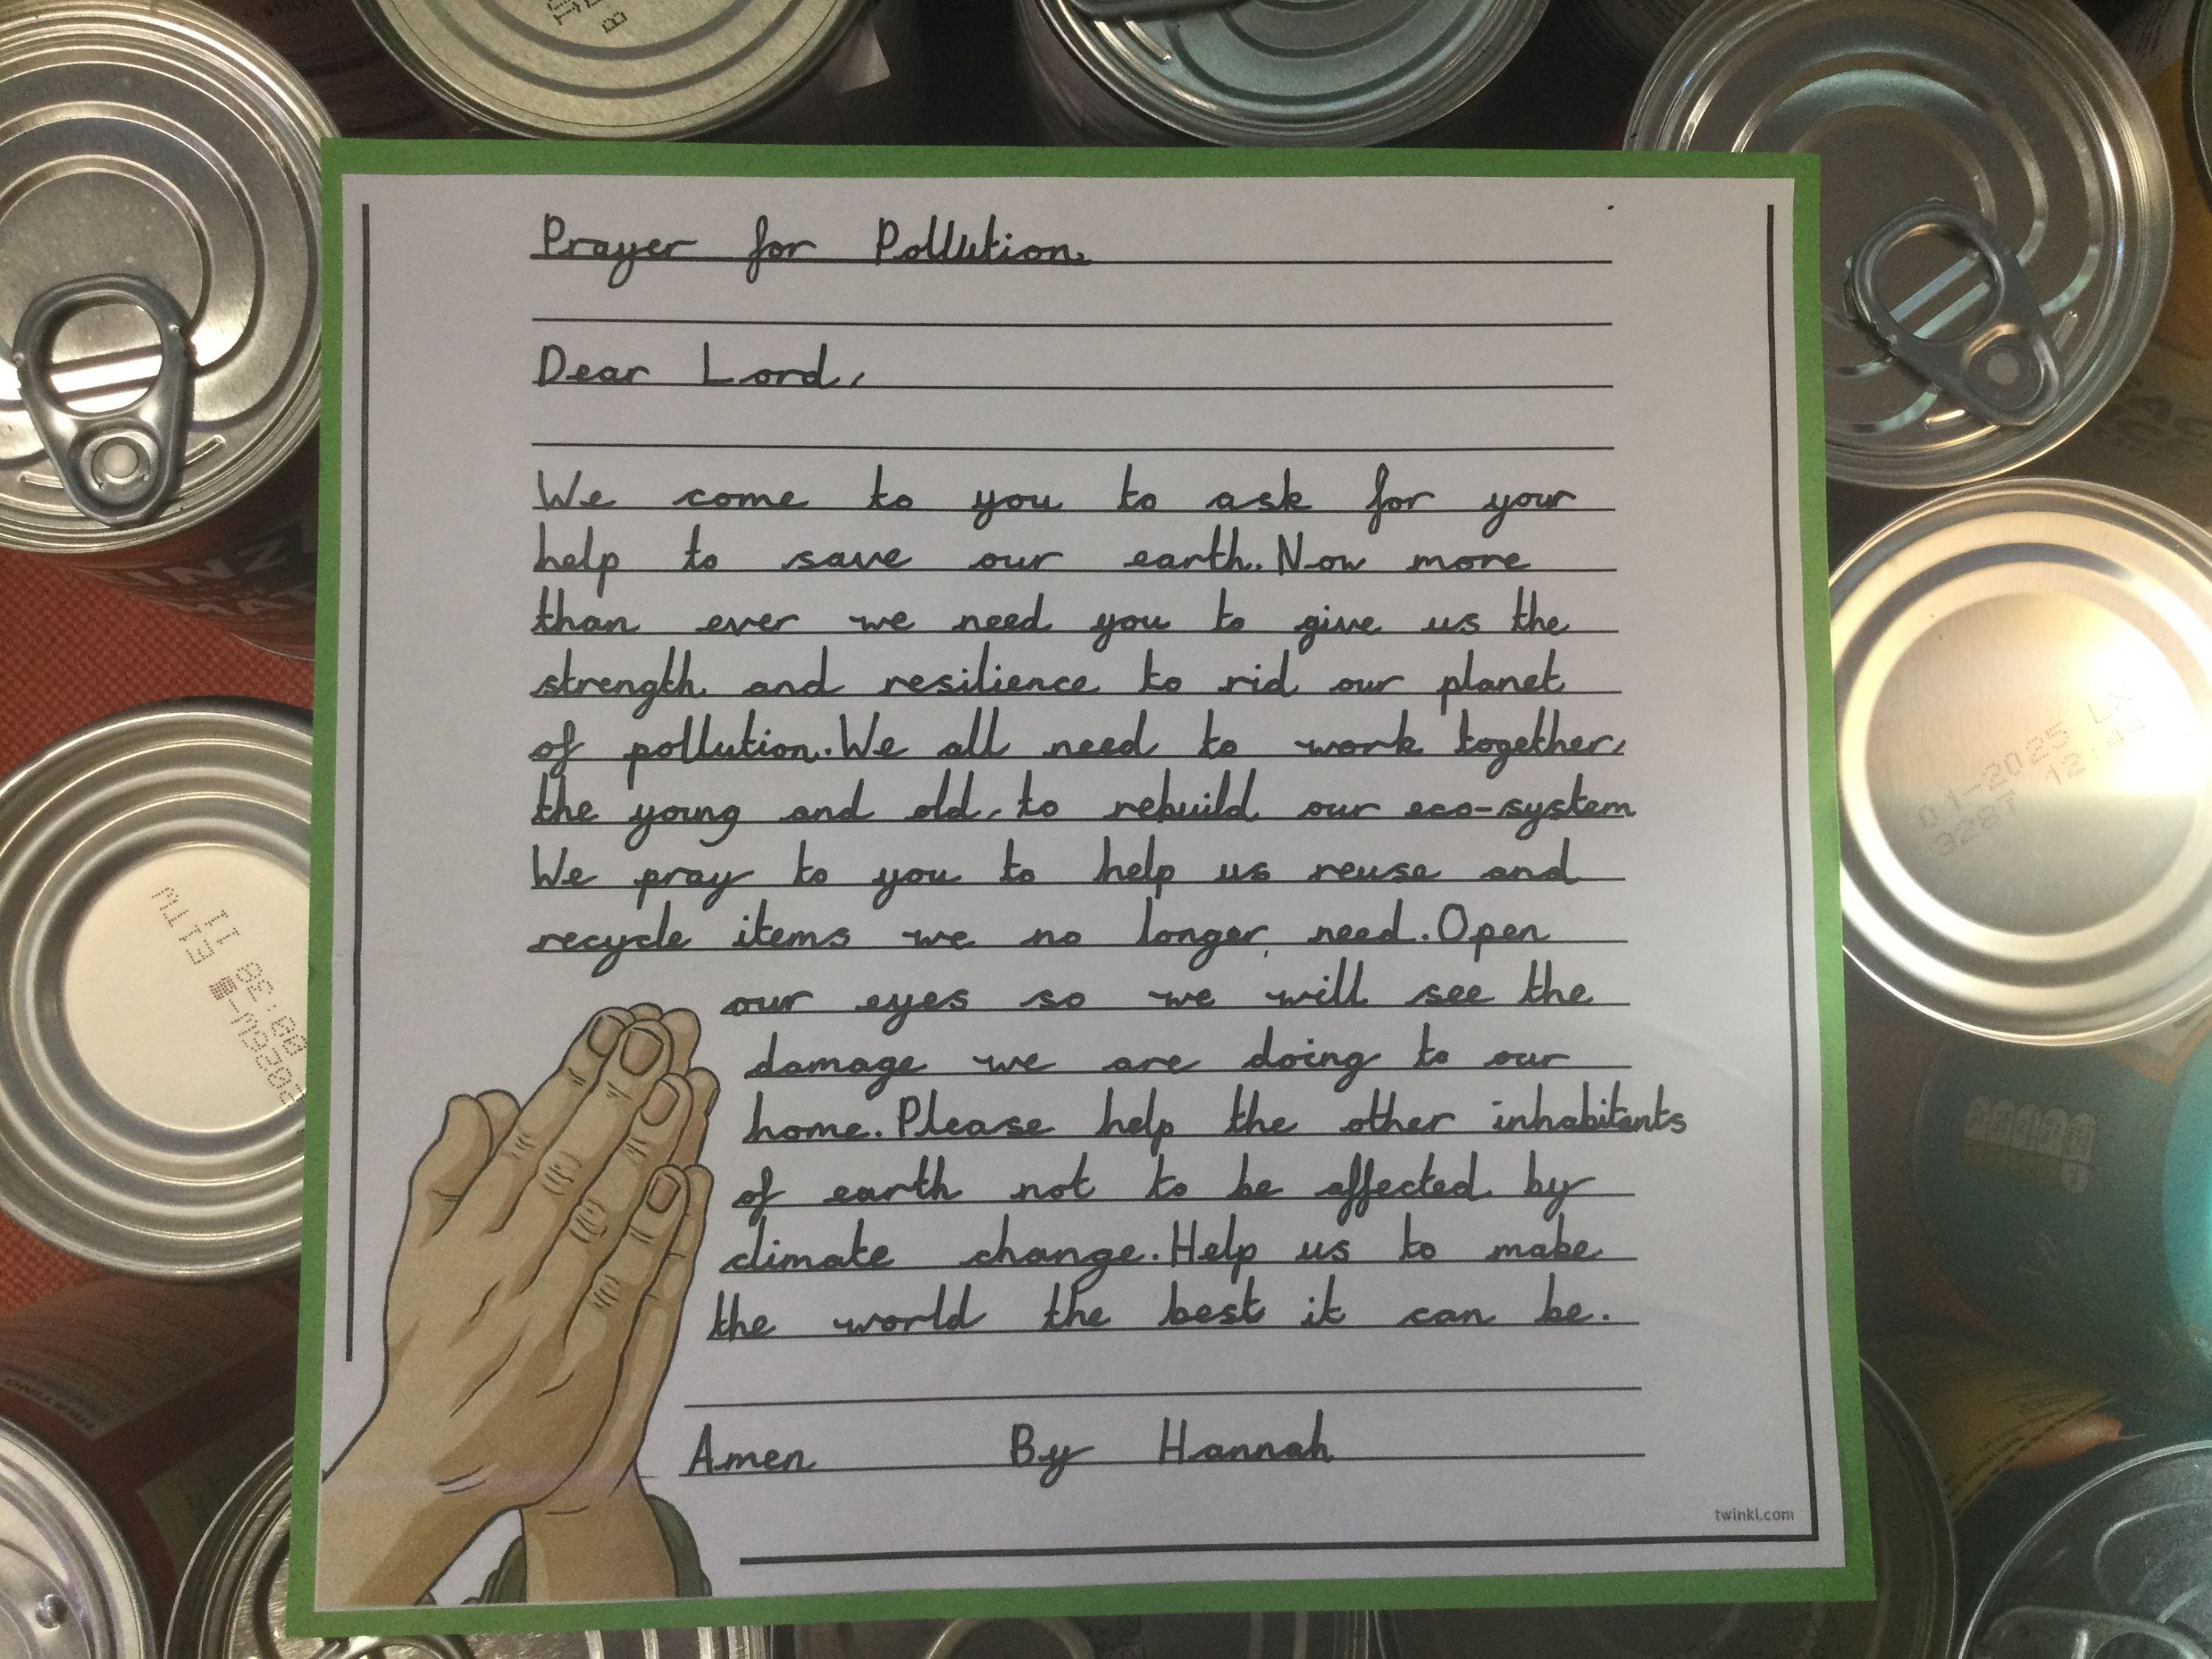 Prayer for Pollution.
Dear Lord,
We come to you to ask for your
help to save our earth. Now more
than ever we need you to give us the
strength and resilience to rid our planet
of pollution. We all need to work together,
the young and old, to rebuild our eco-system
We pray to you to help us reuse and
recycle items we no longer need. Open
our eyes so we will see the
damage we are doing to our
home. Please help the other inhabitents
of earth not to be affected by
climate change. Help us to make
the world the best it can be.
Amen By Hannah
twinkl.com
01-2025 LX
3287 12:44